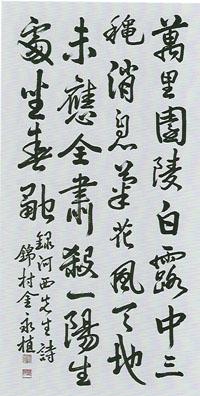 萬里園陵白露中三
穐消息葦花風天地
未應全肅殺一陽生
處坐春融
録河西先生詩
錦村金永植